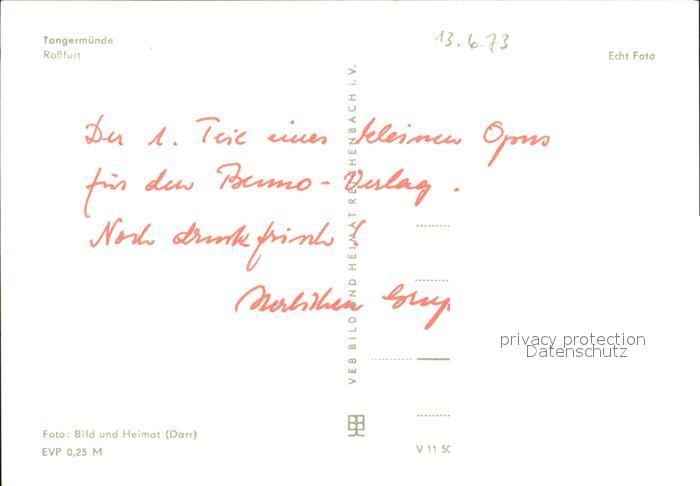 Tangermünde
Roßfurt
13.6.73
Echt Foto
Der 1. Teil eines kleinen Opus
für den Benno-Verlag.
Noch druckfrisch!
Herzlichen Gruß
VEB BILD UND HEIMAT REICHENBACH i. V.
privacy protection
Datenschutz
Foto: Bild und Heimat (Darr)
EVP 0,25 M
V 11 50